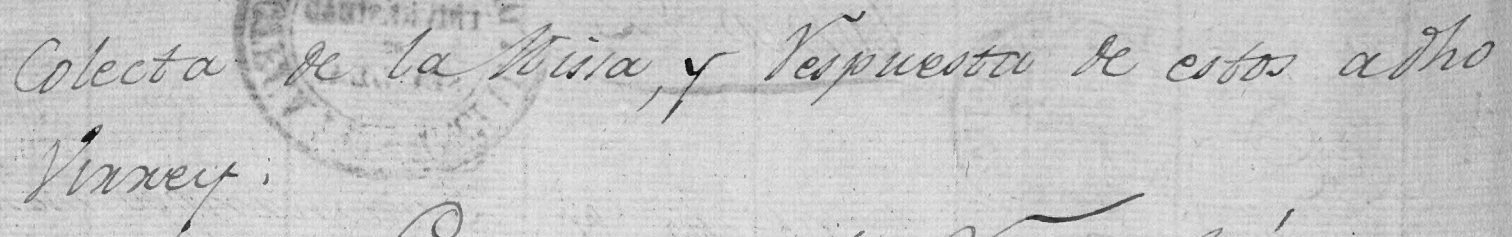 Colecta de la Missa, y Respuesta de estos adho
Virrey.